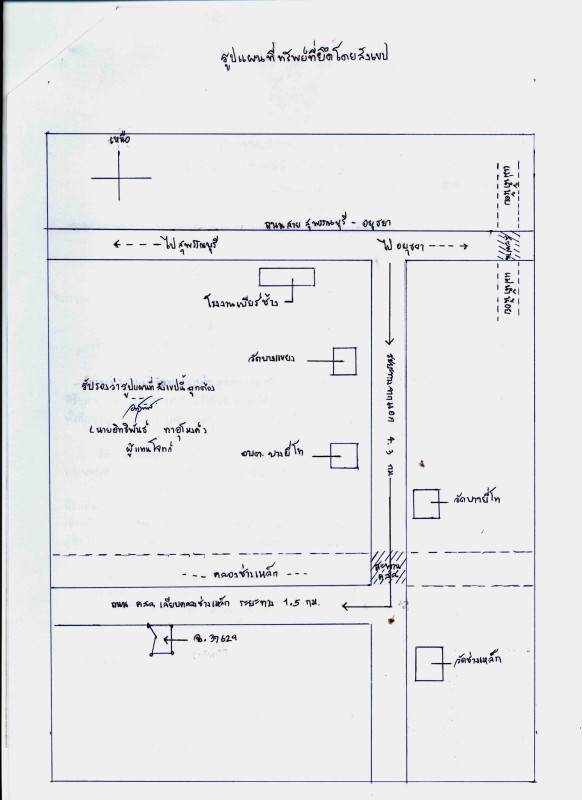 รูปแผนที่ทรัพย์ที่ยึดโดยสังเขป
เหนือ
แม่น้ำน้อย
ถนนสาย สุพรรณบุรี - อยุธยา
ไปสุพรรณบุรี
ไป อยุธยา
สะพาน
แม่น้ำน้อย
โรงงานเบียร์ช้าง
วัดบางแขยง
ระยะทาง
4.3 กม
รับรองว่ารูปแผนที่สังเขปนี้ถูกต้อง
(นายอิทธิพันธ์
ผู้แทนโจทก์
อบต. บางยี่โท
วัดบางยี่โท
สะพาน
คสล
คลองช่างเหล็ก
ถนน คสล เลียบคลองช่างเหล็ก ระยะทาง 1.5 กม.
ฉ. 37629
วัดช่างเหล็ก